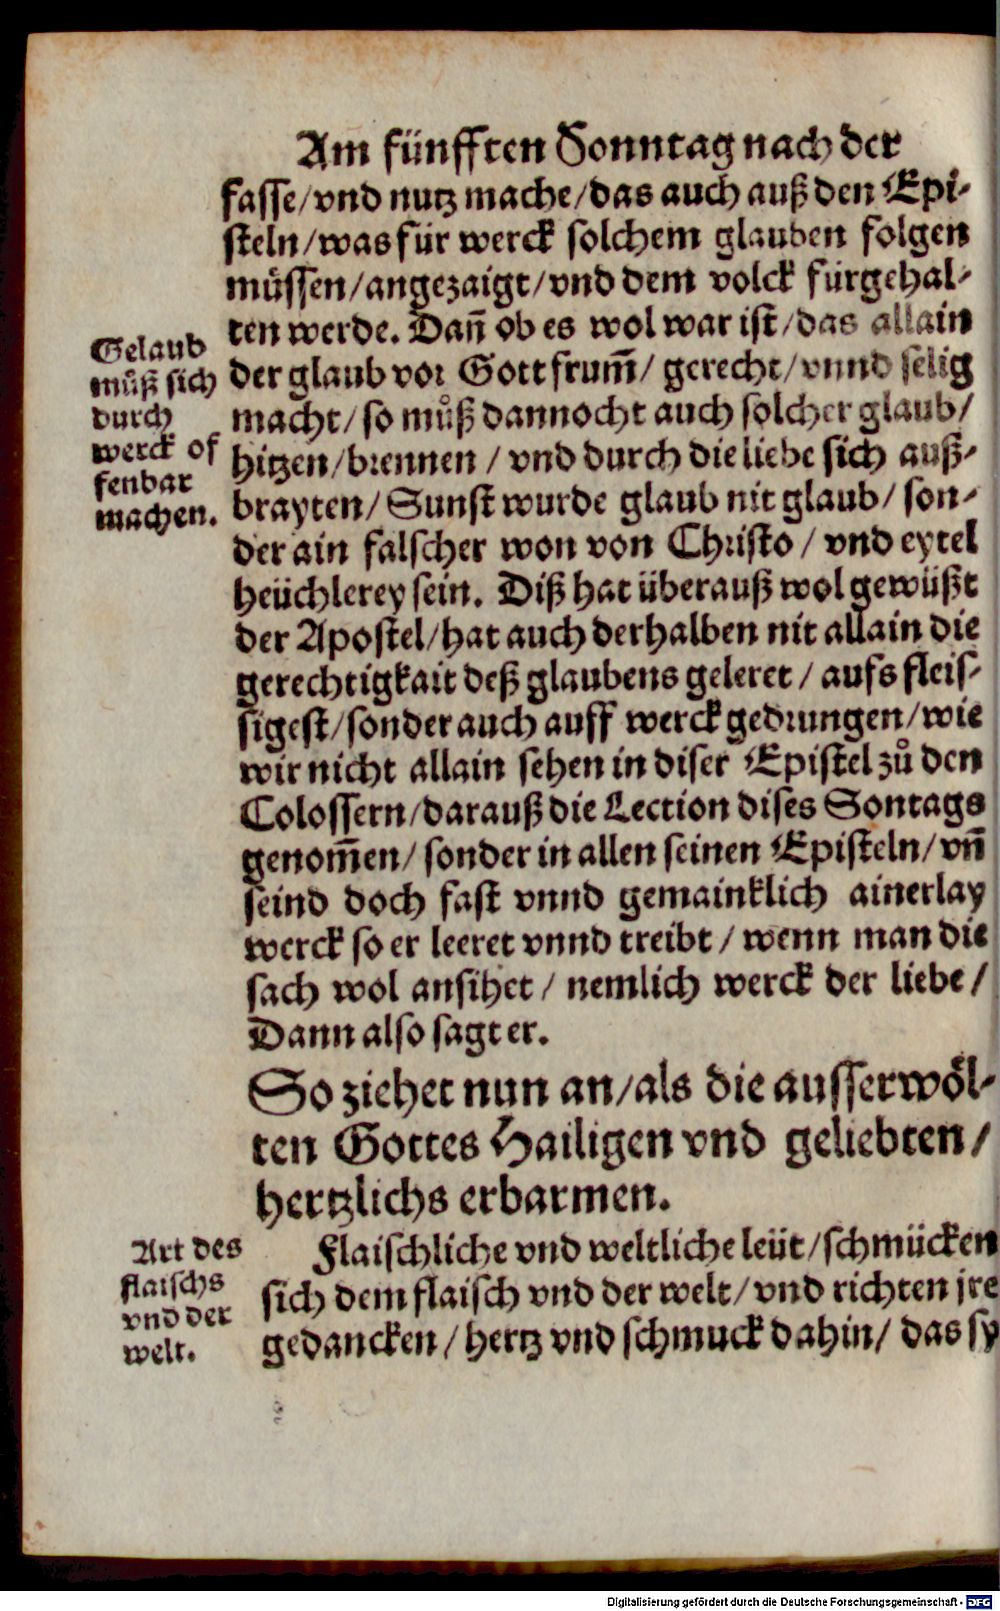 Am fünfften Sonntag nach der
fasse/vnd nutz mache/das auch auß den Epi-
steln/was für werck solchem glauben folgen
müssen/angezaigt/vnd dem volck fürgehal-
ten werde. Dañ ob es wol war ist/das allain
der glaub vor Gott frum̃/ gerecht/vnnd selig
macht/so můß dannocht auch solcher glaub/
hitzen/brennen/vnd durch die liebe sich auß-
brayten/Sunst wurde glaub nit glaub/son-
der ain falscher won von Christo/vnd eytel
heüchlerey sein. Diß hat überauß wol gewüßt
der Apostel/hat auch derhalben nit allain die
gerechtigkait deß glaubens geleret/aufs fleis-
sigest/sonder auch auff werck gedrungen/wie
wir nicht allain sehen in diser Epistel zů den
Colossern/darauß die Lection dises Sontags
genom̃en/sonder in allen seinen Episteln/vñ
seind doch fast vnnd gemainklich ainerlay
werck so er leeret vnnd treibt/wenn man die
sach wol ansihet/nemlich werck der liebe/
Dann also sagt er.
So ziehet nun an/als die ausserwöl-
ten Gottes Hailigen vnd geliebten/
hertzlichs erbarmen.
Flaischliche vnd weltliche leüt/schmücken
sich dem flaisch vnd der welt/vnd richten jre
gedancken/hertz vnd schmuck dahin/das sy
Gelaub
můß sich
durch
werck of
fenbar
machen.
Art des
flaischs
vnd der
welt.
Digitalisierung gefördert durch die Deutsche Forschungsgemeinschaft - DFG